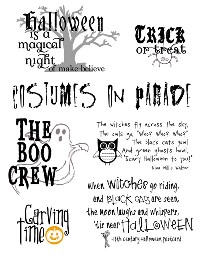 Halloween
is a
magical
night
of make believe
TRICK
or treat
COSTUMES ON PARADE
THE
BOO
CREW
The witches fly across the sky,
The owls go, "Who? Who? Who?"
The black cats yowl
And green ghosts howl,
"Scary Halloween to you!"
When witches go riding,
and black cats are seen,
the moon laughs and whispers,
'tis near Halloween
-19th century Halloween postcard
Carving
time